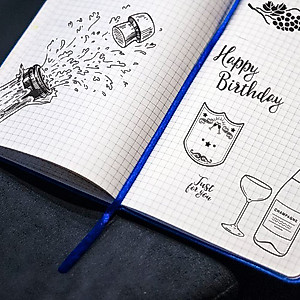 Happy
Birthday
Just
for you
CHAMPAGNE